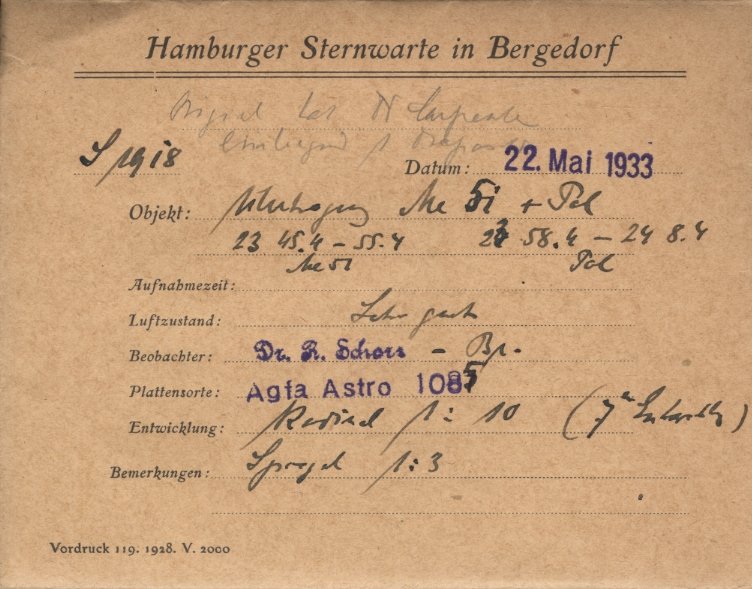 Hamburger Sternwarte in Bergedorf
Original
S 1918
Datum: 22. Mai 1933
Objekt: Me 51 + Pol
23 45.4 – 55.4 23 58.4 – 24 8.4
Me 51 Pol
Aufnahmezeit:
Luftzustand: Sehr gut
Beobachter: Dr. R. Schorr – Br.
Plattensorte: Agfa Astro 1085
Entwicklung: Rodinal 1:10 (7
Bemerkungen: Spiegel 1:3
Vordruck 119. 1928. V. 2000